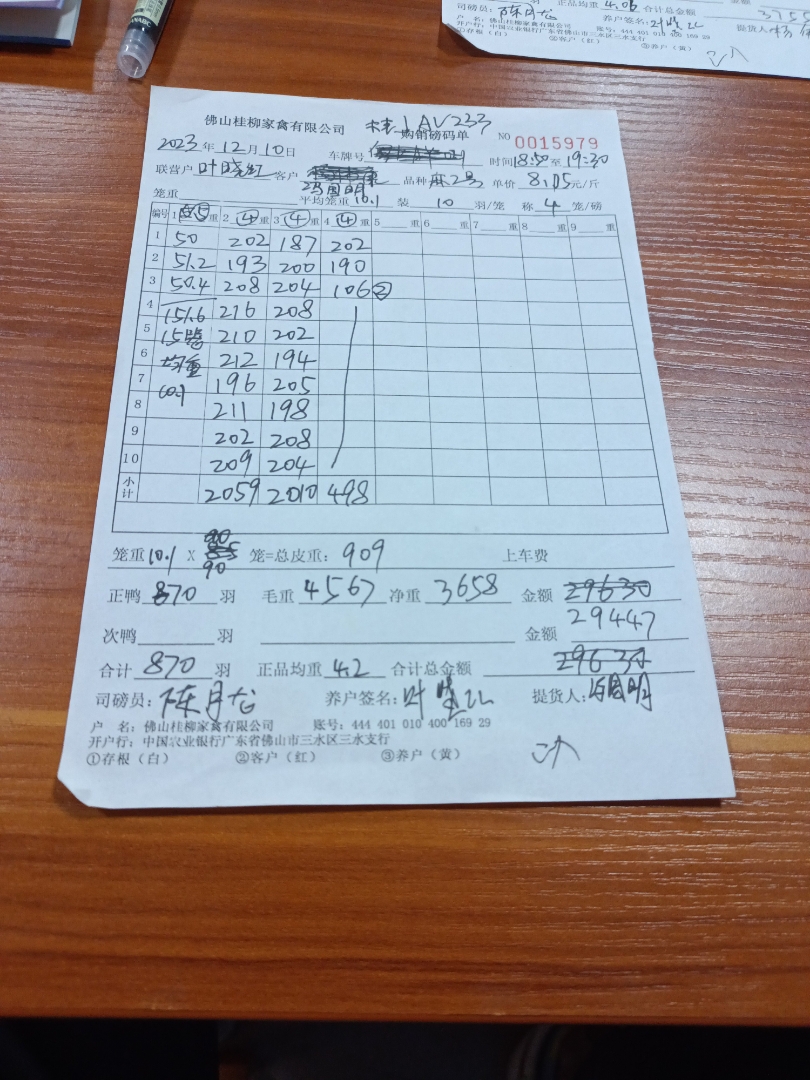 正品均重 4.06 合计总金额
司磅员: 陈月龙 养户签名: 叶晓红 提货人:
户 名: 佛山桂柳家禽有限公司 账号: 444 401 010 400 169 29
开户行: 中国农业银行广东省佛山市三水区三水支行
①存根（白） ②客户（红） ③养户（黄）
佛山桂柳家禽有限公司 购销磅码单 NO 0015979
AV233
2023 年 12 月 10 日 车牌号 时间 18:50 至 19:30
联营户 叶晓红 客户 冯国明 品种 麻2号 单价 8.05 元/斤
笼重 平均笼重 10.1 装 10 羽/笼 称 4 笼/磅
编号 1 ⑤ 重 2 ④ 重 3 ④ 重 4 ④ 重 5 重 6 重 7 重 8 重 9 重
1 50 202 187 202
2 51.2 193 200 190
3 50.4 208 204 106 ②
4 151.6 216 208
5 15 210 202
6 均重 212 194
7 10.1 196 205
8 211 198
9 202 208
10 209 204
小计 2059 2010 498
笼重 10.1 X 90 笼=总皮重: 909 上车费
正鸭 870 羽 毛重 4567 净重 3658 金额 29630
29447
次鸭 羽 金额
合计 870 羽 正品均重 4.2 合计总金额 29630
司磅员: 陈月龙 养户签名: 叶晓红 提货人: 冯国明
户 名: 佛山桂柳家禽有限公司 账号: 444 401 010 400 169 29
开户行: 中国农业银行广东省佛山市三水区三水支行
①存根（白） ②客户（红） ③养户（黄）